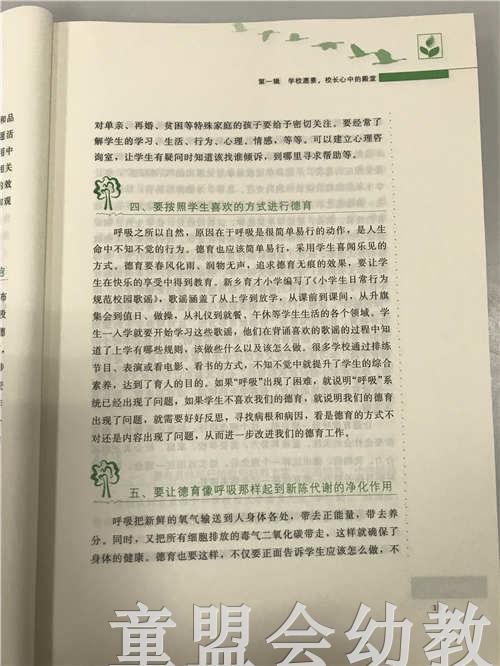 第一辑 学校愿景，校长心中的殿堂
对单亲、再婚、贫困等特殊家庭的孩子要给予密切关注。要经常了
解学生的学习、生活、行为、心理、情感，等等。可以建立心理咨
询室，让学生有疑问时知道该找谁倾诉，到哪里寻求帮助等。
四、要按照学生喜欢的方式进行德育
呼吸之所以自然，原因在于呼吸是很简单易行的动作，是人生
命中不知不觉的行为。德育也应该简单易行，采用学生喜闻乐见的
方式。德育要春风化雨、润物无声，追求德育无痕的效果，要让学
生在快乐的享受中得到教育。新乡育才小学编写了《小学生日常行为
规范校园歌谣》，歌谣涵盖了从上学到放学，从课前到课间，从升旗
集会到值日、做操，从礼仪到就餐、午休等学生生活的各个领域。学
生一入学就要开始学习这些歌谣，他们在背诵喜欢的歌谣的过程中知
道了上学有哪些规则，该做些什么以及该怎么做。很多学校通过排练
节目、表演或看电影、看书的方式，不知不觉中就提升了学生的综合
素养，达到了育人的目的。如果“呼吸”出现了困难，就说明“呼吸”系
统已经出现了问题，如果学生不喜欢我们的德育，就说明我们的德育
出现了问题，就需要好好反思，寻找病根和病因，看是德育的方式不
对还是内容出现了问题，从而进一步改进我们的德育工作。
五、要让德育像呼吸那样起到新陈代谢的净化作用
呼吸把新鲜的氧气输送到人身体各处，带去正能量，带去养
分。同时，又把所有细胞排放的毒气二氧化碳带走，这样就确保了
身体的健康。德育也要这样，不仅要正面告诉学生应该怎么做，不
童盟会幼教